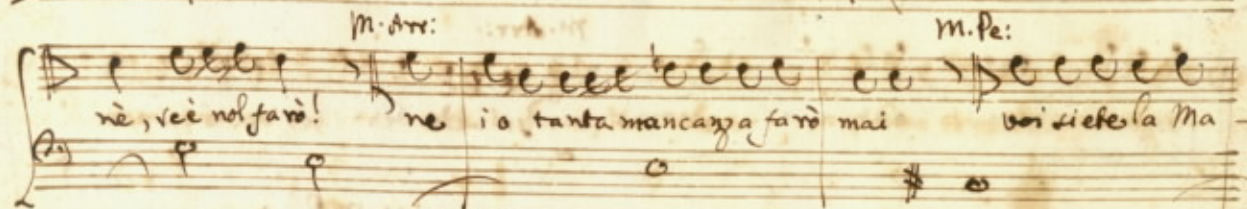 M. Arr: M. Pe:
nè, ve è nol farò! ne io tanta mancanza farò mai voi siete la Ma-